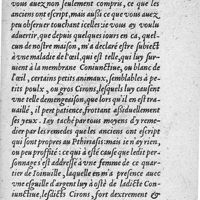 vous auez non seulement compris, ce que les
anciens ont escript, mais außi ce que vous auez
peu obseruer touchant icelles: ie vous ay voulu
aduertir, que depuis quelques iours en ca, quel-
cun de nostre maison, m'a declaré estre subiect
à vne maladie de l'œil, qui est telle, qui luy sur-
uient à la membrane Coniunctiue, ou blanc de
l'œil, certains petits animaux, semblables à pe-
tits poulx, ou gros Cirons, lesquels luy causent
vne telle demengeaison, que lors qu'il en est tra-
uaillé, il pert patience, frottant aßiduellement
ses yeux. I'ay taché par tous moyens d'y reme-
dier par les remedes que les anciens ont escript
qui sont propres au Pthiriasis: mais ie n'y ay rien,
ou peu proffité: ce qui a esté cause que ledit per-
sonnages est addressé à vne femme de ce quar-
tier de Ioinuille, laquelle en m'a presence auec
vne esguille d'argent luy à osté de ladicte Co-
iunctiue, lesdicts Cirons, fort dextrement &